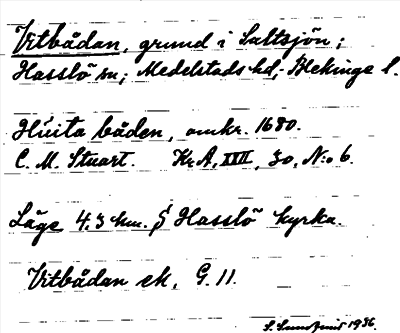 Vitbådan, grund i Saltsjön;
Hasslö sn; Medelstads hd; Blekinge l.
Huita båden, omkr. 1680.
C. M. Stuart. Kr. A, XIII, 30, N:o 6.
Läge 4,3 km. S Hasslö kyrka.
Vitbådan ek. G. 11.
1936.